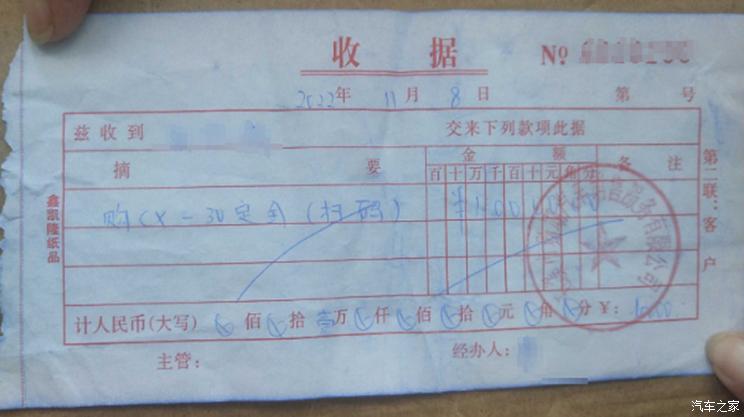 收 据 №
2022年 11月 8日 第 号
兹收到 交来下列款项此据
摘 要 金 额 备 注
百十万千百十元角分
购CX-30定金(扫码) ¥1000000
计人民币(大写) ⊗佰⊗拾壹万⊗仟⊗佰⊗拾⊗元⊗角⊗分 ¥:
主管: 经办人:
第二联:客户
鑫凯隆纸品
服务有限公司
汽车之家